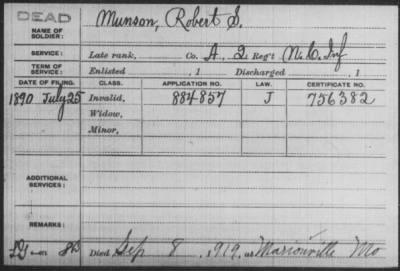 DEAD
NAME OF SOLDIER: Munson, Robert S.
SERVICE: Late rank, Co. A, 2 Reg't N.C. Inf
TERM OF SERVICE: Enlisted , 1 Discharged , 1
DATE OF FILING. CLASS. APPLICATION NO. LAW. CERTIFICATE NO.
1890 July 25 Invalid, 884857 J 756382
Widow,
Minor,
ADDITIONAL SERVICES:
REMARKS:
Died Sep 8, 1919, at Marionville Mo